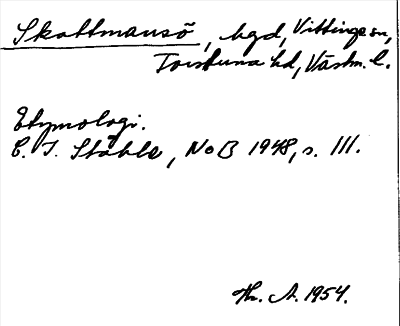 Skattmansö, hgd, Vittinge sn,
Torstuna hd, Västm. l.
Etymologi.
C. I. Ståhle, NoB 1948, s. 111.
Th. A. 1954.